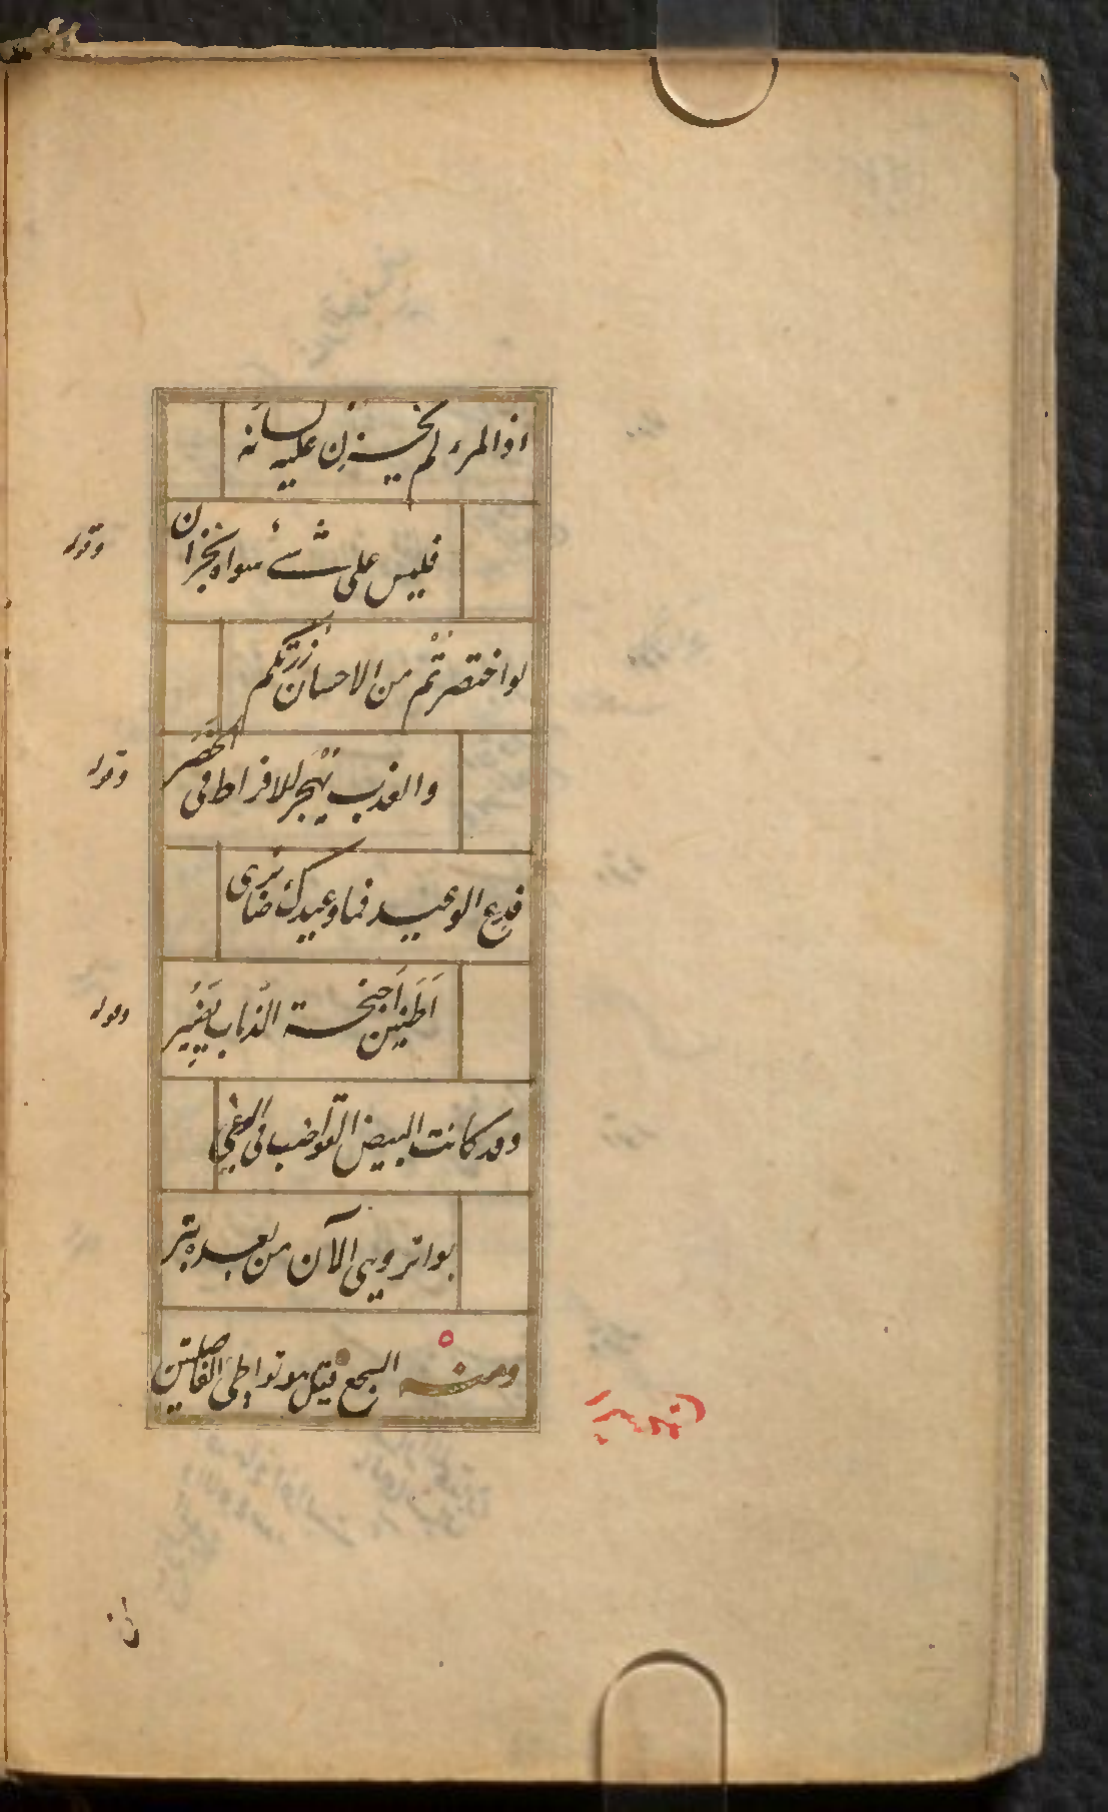 اذا المرء لم يخزن عليه لسانه
فليس على شئ سواه بخزان
وقوله
لو اختصرتم من الاحسان زرتكم
والعذب يهجر للافراط فى الخصر
وقوله
فدع الوعيد فما وعيدك ضائرى
اَطَنين اَجنحة الذباب يَضير
وقوله
وقد كانت البيض القواضب فى الوغى
بواتر وهى الآن من بعده بتر
ومنه السجع قيل هو تواطئ الفاصلتين